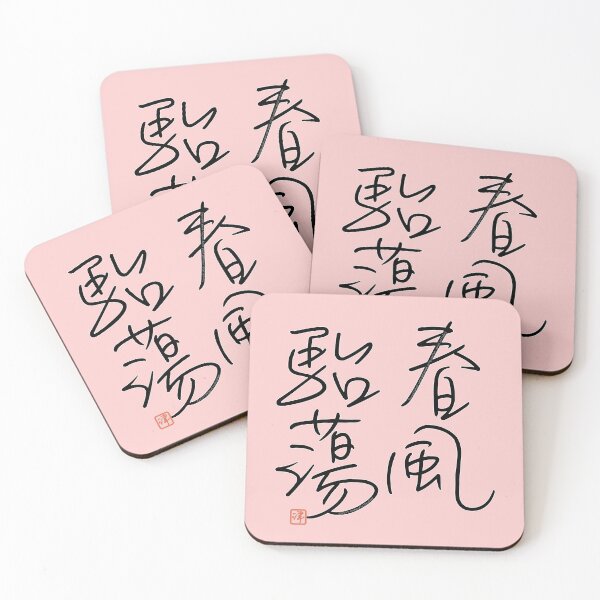 春風
駘蕩
春風
駘蕩
春風
駘蕩
春風
駘蕩